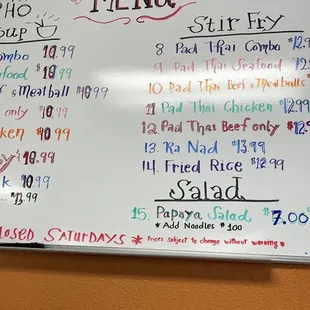 MENU
PHO
Soup
ombo $10.99
eafood $10.99
f & Meatball $10.99
only $10.99
cken $10.99
$10.99
$10.99
$13.99
CLOSED SATURDAYS
Stir Fry
8 Pad Thai Combo $12.9
9 Pad Thai Seafood $12
10 Pad Thai Beef & Meatballs $
11 Pad Thai Chicken $12.99
12 Pad Thai Beef only $12.9
13. Ra Nad $13.99
14. Fried Rice $12.99
Salad
15. Papaya Salad $7.00
* Add Noodles $1.00
* Prices subject to change without warning *